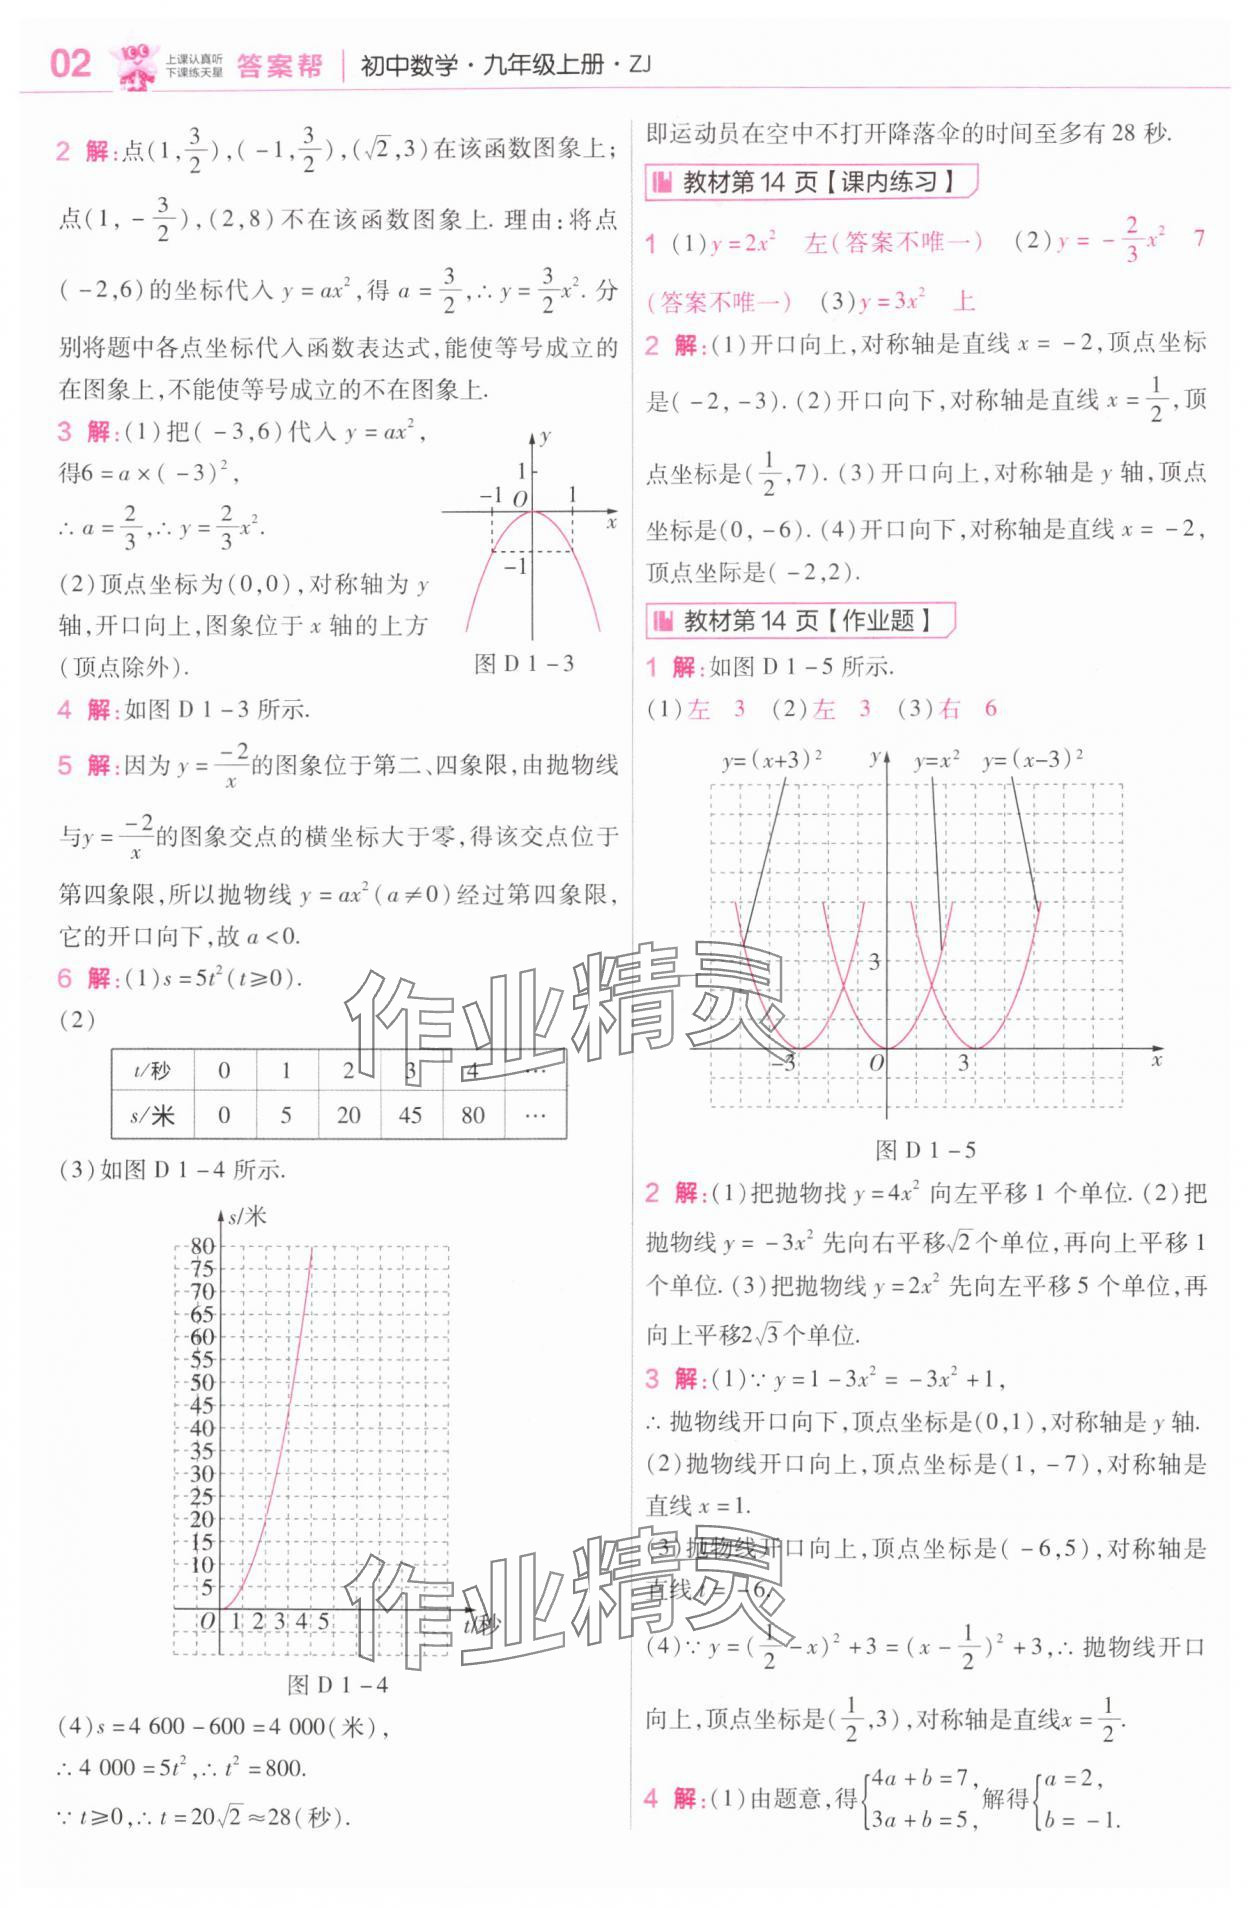 02 上课认真听 下课练天星 答案帮 初中数学·九年级上册·ZJ
2 解:点(1,3/2),(-1,3/2),(√2,3)在该函数图象上;
点(1,-3/2),(2,8)不在该函数图象上.理由:将点
(-2,6)的坐标代入y=ax²,得a=3/2,∴y=3/2x².分
别将题中各点坐标代入函数表达式,能使等号成立的
在图象上,不能使等号成立的不在图象上.
3 解:(1)把(-3,6)代入y=ax²,
得6=a×(-3)²,
∴a=2/3,∴y=2/3x².
(2)顶点坐标为(0,0),对称轴为y
轴,开口向上,图象位于x轴的上方
(顶点除外).
y
1
-1 O 1 x
-1
图D1-3
4 解:如图D1-3所示.
5 解:因为y=-2/x的图象位于第二、四象限,由抛物线
与y=-2/x的图象交点的横坐标大于零,得该交点位于
第四象限,所以抛物线y=ax²(a≠0)经过第四象限,
它的开口向下,故a<0.
6 解:(1)s=5t²(t≥0).
(2)
t/秒 0 1 2 3 4 …
s/米 0 5 20 45 80 …
(3)如图D1-4所示.
s/米
80
75
70
65
60
55
50
45
40
35
30
25
20
15
10
5
O 1 2 3 4 5 t/秒
图D1-4
(4)s=4 600-600=4 000(米),
∴4 000=5t²,∴t²=800.
∵t≥0,∴t=20√2≈28(秒).
即运动员在空中不打开降落伞的时间至多有28秒.
教材第14页【课内练习】
1 (1)y=2x² 左(答案不唯一) (2)y=-2/3x² 7
(答案不唯一) (3)y=3x² 上
2 解:(1)开口向上,对称轴是直线x=-2,顶点坐标
是(-2,-3).(2)开口向下,对称轴是直线x=1/2,顶
点坐标是(1/2,7).(3)开口向上,对称轴是y轴,顶点
坐标是(0,-6).(4)开口向下,对称轴是直线x=-2,
顶点坐际是(-2,2).
教材第14页【作业题】
1 解:如图D1-5所示.
(1)左 3 (2)左 3 (3)右 6
y=(x+3)² y y=x² y=(x-3)²
3
-3 O 3 x
图D1-5
2 解:(1)把抛物找y=4x²向左平移1个单位.(2)把
抛物线y=-3x²先向右平移√2个单位,再向上平移1
个单位.(3)把抛物线y=2x²先向左平移5个单位,再
向上平移2√3个单位.
3 解:(1)∵y=1-3x²=-3x²+1,
∴抛物线开口向下,顶点坐标是(0,1),对称轴是y轴.
(2)抛物线开口向上,顶点坐标是(1,-7),对称轴是
直线x=1.
(3)抛物线开口向上,顶点坐标是(-6,5),对称轴是
直线t=-6.
(4)∵y=(1/2-x)²+3=(x-1/2)²+3,∴抛物线开口
向上,顶点坐标是(1/2,3),对称轴是直线x=1/2.
4 解:(1)由题意,得{4a+b=7, 3a+b=5, 解得{a=2, b=-1.
作业精灵
作业精灵